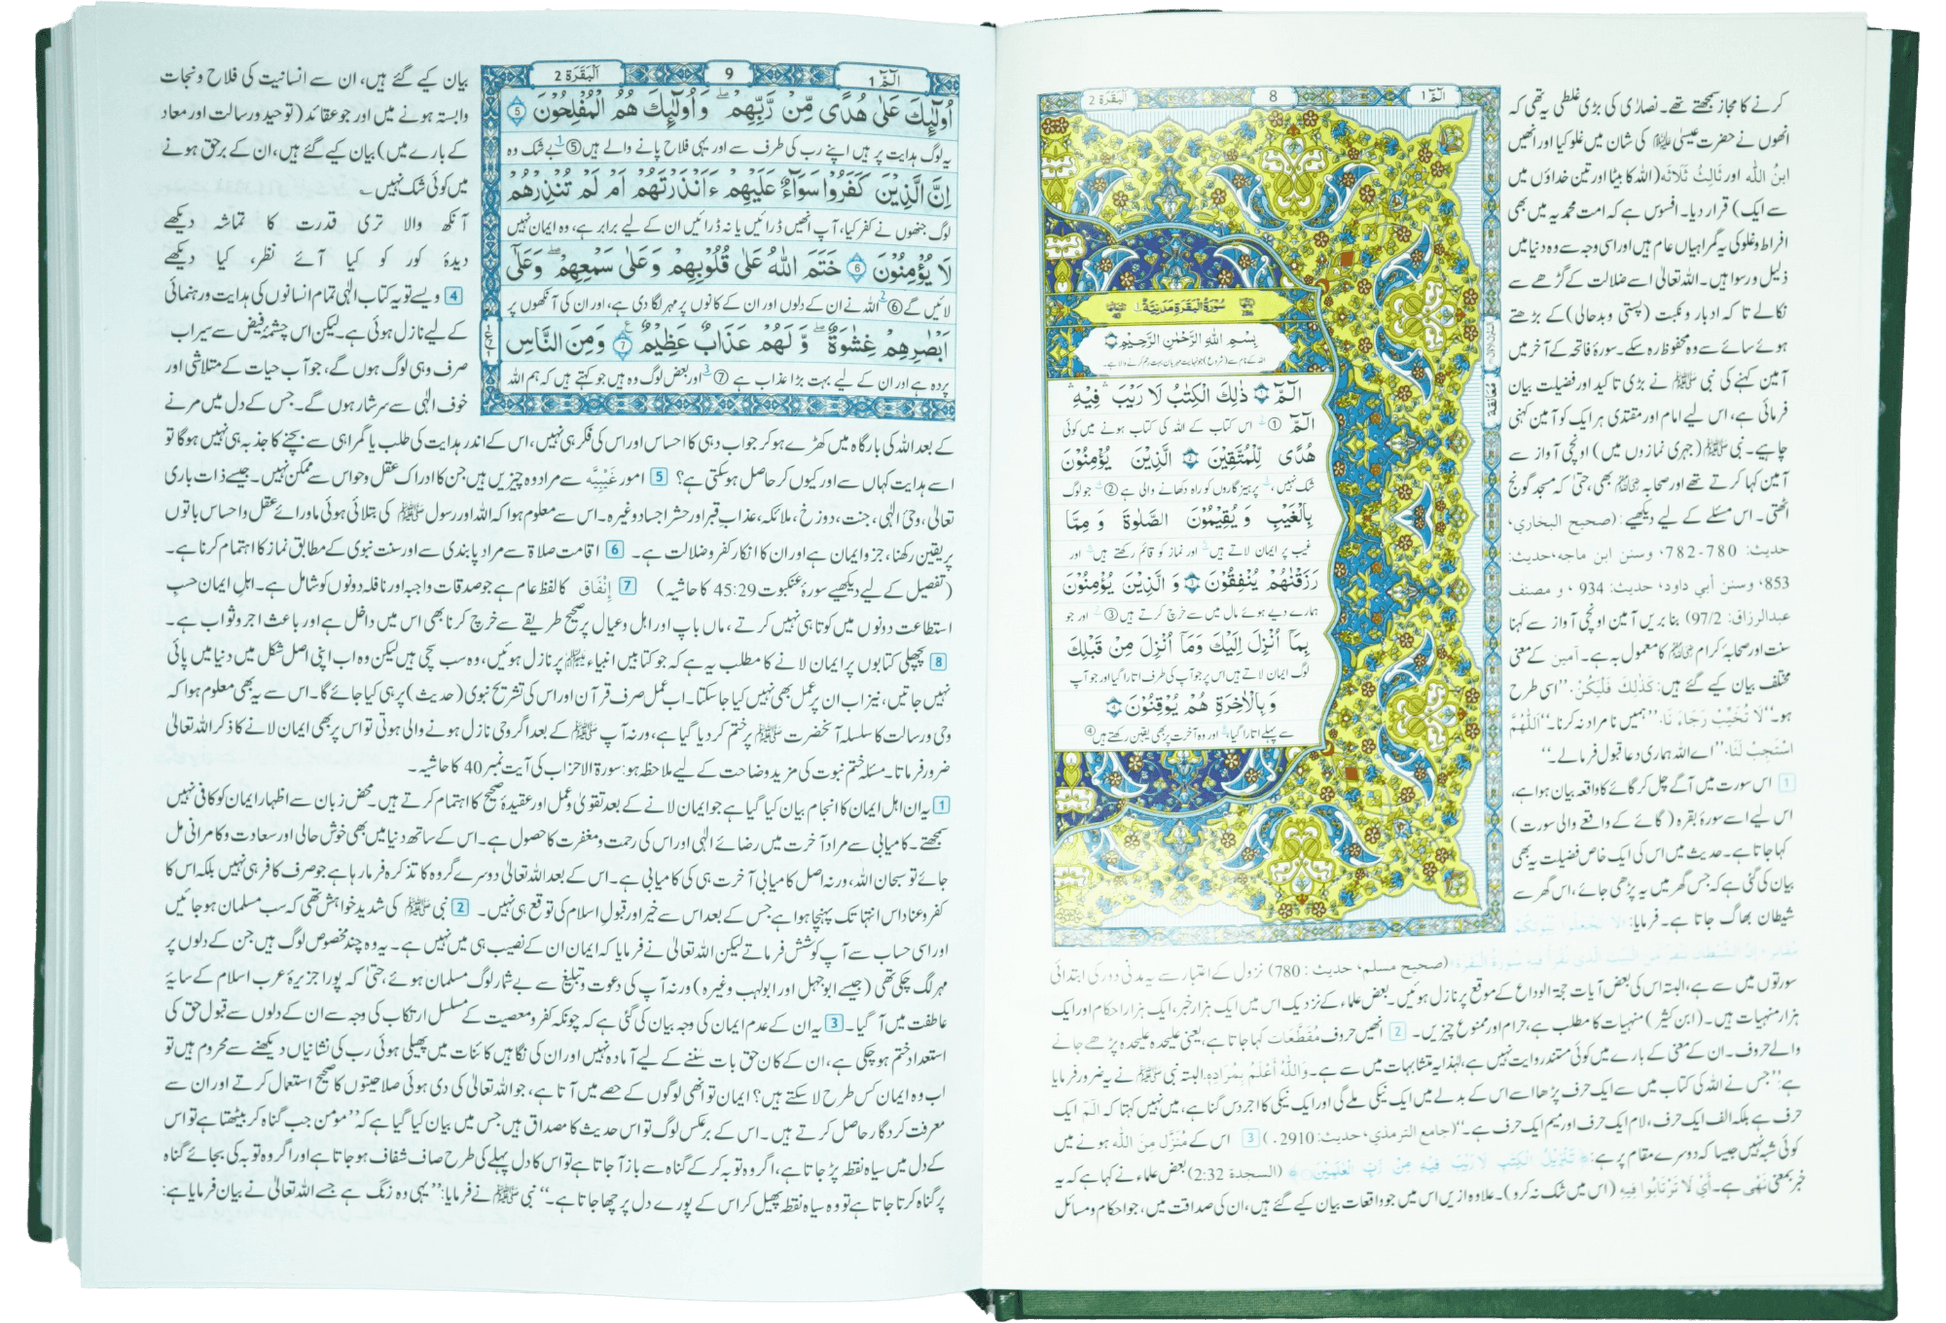 الٓمّٓ 1
8
اَلْبَقَرَة 2
کرنے کا مجاز سمجھتے تھے۔ نصاریٰ کی بڑی غلطی یہ تھی کہ
انھوں نے حضرت عیسیٰ علیہ السلام کی شان میں غلو کیا اور انھیں
ابنُ اللّٰہ اور ثَالِثُ ثَلَاثَہ (اللہ کا بیٹا اور تین خداؤں میں
سے ایک) قرار دیا۔ افسوس ہے کہ امت محمدیہ میں بھی
افراط و غلو کی یہ گمراہیاں عام ہیں اور اسی وجہ سے وہ دنیا میں
ذلیل و رسوا ہیں۔ اللہ تعالیٰ اسے ضلالت کے گڑھے سے
نکالے تا کہ ادبار و نکبت (پستی و بدحالی) کے بڑھتے
ہوئے سائے سے وہ محفوظ رہ سکے۔ سورۂ فاتحہ کے آخر میں
آمین کہنے کی نبی ﷺ نے بڑی تاکید اور فضیلت بیان
فرمائی ہے، اس لیے امام اور مقتدی ہر ایک کو آمین کہنی
چاہیے۔ نبی ﷺ (جہری نمازوں میں) اونچی آواز سے
آمین کہا کرتے تھے اور صحابہ بھی، حتیٰ کہ مسجد گونج
اٹھتی۔ اس مسئلے کے لیے دیکھیے: (صحیح البخاري،
حدیث: 780-782، وسنن ابن ماجه، حدیث:
853، وسنن أبي داود، حدیث: 934 ، و مصنف
عبدالرزاق: 97/2) بنا بریں آمین اونچی آواز سے کہنا
سنت اور صحابۂ کرام کا معمول بہ ہے۔ آمین کے معنی
مختلف بیان کیے گئے ہیں: کَذٰلِكَ فَلْیَکُنْ، ’’اسی طرح
ہو۔‘‘ لَا تُخَیِّبْ رَجَاءَ نَا، ’’ہمیں نامراد نہ کرنا۔‘‘ اَللّٰهُمَّ
اسْتَجِبْ لَنَا، ’’اے اللہ ہماری دعا قبول فرما لے۔‘‘
1 اس سورت میں آگے چل کر گائے کا واقعہ بیان ہوا ہے،
اس لیے اسے سورۂ بقرہ (گائے کے واقعے والی سورت)
کہا جاتا ہے۔ حدیث میں اس کی ایک خاص فضیلت یہ بھی
بیان کی گئی ہے کہ جس گھر میں یہ پڑھی جائے، اس گھر سے
شیطان بھاگ جاتا ہے۔ فرمایا:
سُوْرَةُ الْبَقَرَةِ مَدَنِيَّةٌ
بِسْمِ اللّٰهِ الرَّحْمٰنِ الرَّحِيْمِ
اللہ کے نام سے (شروع) جو نہایت مہربان بہت رحم کرنے والا ہے۔
الٓمّٓ ذٰلِكَ الْكِتٰبُ لَا رَيْبَ فِيْهِ
الٓمّٓ ① اس کتاب کے اللہ کی کتاب ہونے میں کوئی
هُدًى لِّلْمُتَّقِيْنَ الَّذِيْنَ يُؤْمِنُوْنَ
شک نہیں، پرہیز گاروں کو راہ دکھانے والی ہے ② جو لوگ
بِالْغَيْبِ وَيُقِيْمُوْنَ الصَّلٰوةَ وَمِمَّا
غیب پر ایمان لاتے ہیں اور نماز کو قائم رکھتے ہیں اور
رَزَقْنٰهُمْ يُنْفِقُوْنَ وَالَّذِيْنَ يُؤْمِنُوْنَ
ہمارے دیے ہوئے مال میں سے خرچ کرتے ہیں ③ اور جو
بِمَآ اُنْزِلَ اِلَيْكَ وَمَآ اُنْزِلَ مِنْ قَبْلِكَ
لوگ ایمان لاتے ہیں اس پر جو آپ کی طرف اتارا گیا اور جو آپ
وَبِالْاٰخِرَةِ هُمْ يُوْقِنُوْنَ
سے پہلے اتارا گیا، اور وہ آخرت پر بھی یقین رکھتے ہیں ④
مُعَانَقَة
(صحیح مسلم، حدیث : 780) نزول کے اعتبار سے یہ مدنی دور کی ابتدائی
سورتوں میں سے ہے، البتہ اس کی بعض آیات حجۃ الوداع کے موقع پر نازل ہوئیں۔ بعض علماء کے نزدیک اس میں ایک ہزار خبر، ایک ہزار احکام اور ایک
ہزار منہیات ہیں۔ (ابن کثیر) منہیات کا مطلب ہے، حرام اور ممنوع چیزیں۔ 2 انھیں حروف مُقَطَّعَات کہا جاتا ہے، یعنی علیحدہ علیحدہ پڑھے جانے
والے حروف۔ ان کے معنی کے بارے میں کوئی مستند روایت نہیں ہے، لہٰذا یہ متشابہات میں سے ہے۔ وَاللّٰهُ أَعْلَمُ بِمُرَادِہٖ۔ البتہ نبی ﷺ نے یہ ضرور فرمایا
ہے: ’’جس نے اللہ کی کتاب میں سے ایک حرف پڑھا اسے اس کے بدلے میں ایک نیکی ملے گی اور ایک نیکی کا اجر دس گنا ہے، میں نہیں کہتا کہ الٓمٓ ایک
حرف ہے بلکہ الف ایک حرف، لام ایک حرف اور میم ایک حرف ہے۔‘‘ (جامع الترمذي، حدیث: 2910.) 3 اس کے مُنَزَّل مِنَ اللّٰه ہونے میں
کوئی شبہ نہیں جیسا کہ دوسرے مقام پر ہے: ﴿تَنْزِيْلُ الْكِتٰبِ لَا رَيْبَ فِيْهِ مِنْ رَّبِّ الْعٰلَمِيْنَ﴾ (السجدۃ 2:32) بعض علماء نے کہا ہے کہ یہ
خبر بمعنی نَھْی ہے۔ أَيْ لَا تَرْتَابُوا فِيهِ (اس میں شک نہ کرو)۔ علاوہ ازیں اس میں جو واقعات بیان کیے گئے ہیں، ان کی صداقت میں، جو احکام و مسائل
الٓمّٓ 1
9
اَلْبَقَرَة 2
اُولٰٓئِكَ عَلٰى هُدًى مِّنْ رَّبِّهِمْ وَاُولٰٓئِكَ هُمُ الْمُفْلِحُوْنَ 5
یہ لوگ ہدایت پر ہیں اپنے رب کی طرف سے اور یہی فلاح پانے والے ہیں 1 ⑤ بے شک وہ
اِنَّ الَّذِيْنَ كَفَرُوْا سَوَآءٌ عَلَيْهِمْ ءَاَنْذَرْتَهُمْ اَمْ لَمْ تُنْذِرْهُمْ
لوگ جنھوں نے کفر کیا، آپ انھیں ڈرائیں یا نہ ڈرائیں ان کے لیے برابر ہے، وہ ایمان نہیں
لَا يُؤْمِنُوْنَ 6 خَتَمَ اللّٰهُ عَلٰى قُلُوْبِهِمْ وَعَلٰى سَمْعِهِمْ وَعَلٰٓى
لائیں گے 2 ⑥ اللہ نے ان کے دلوں اور ان کے کانوں پر مہر لگا دی ہے، اور ان کی آنکھوں پر
اَبْصٰرِهِمْ غِشٰوَةٌ وَّلَهُمْ عَذَابٌ عَظِيْمٌ 7 وَمِنَ النَّاسِ
پردہ ہے اور ان کے لیے بہت بڑا عذاب ہے 3 ⑦ اور بعض لوگ وہ ہیں جو کہتے ہیں کہ ہم اللہ
بیان کیے گئے ہیں، ان سے انسانیت کی فلاح و نجات
وابستہ ہونے میں اور جو عقائد (توحید و رسالت اور معاد
کے بارے میں) بیان کیے گئے ہیں، ان کے برحق ہونے
میں کوئی شک نہیں۔
آنکھ والا تری قدرت کا تماشہ دیکھے
دیدۂ کور کو کیا آئے نظر، کیا دیکھے
4 ویسے تو یہ کتاب الٰہی تمام انسانوں کی ہدایت و رہنمائی
کے لیے نازل ہوئی ہے۔ لیکن اس چشمۂ فیض سے سیراب
صرف وہی لوگ ہوں گے، جو آب حیات کے متلاشی اور
خوف الٰہی سے سرشار ہوں گے۔ جس کے دل میں مرنے
کے بعد اللہ کی بارگاہ میں کھڑے ہو کر جواب دہی کا احساس اور اس کی فکر ہی نہیں، اس کے اندر ہدایت کی طلب یا گمراہی سے بچنے کا جذبہ ہی نہیں ہو گا تو
اسے ہدایت کہاں سے اور کیوں کر حاصل ہو سکتی ہے؟ 5 امور غَیْبِیَّه سے مراد وہ چیزیں ہیں جن کا ادراک عقل و حواس سے ممکن نہیں۔ جیسے ذات باری
تعالیٰ، وحیٔ الٰہی، جنت، دوزخ، ملائکہ، عذاب قبر اور حشر اجساد وغیرہ۔ اس سے معلوم ہوا کہ اللہ اور رسول ﷺ کی بتلائی ہوئی ماورائے عقل و احساس باتوں
پر یقین رکھنا، جزو ایمان ہے اور ان کا انکار کفر و ضلالت ہے۔ 6 اقامت صلاۃ سے مراد پابندی سے اور سنت نبوی کے مطابق نماز کا اہتمام کرنا ہے۔
(تفصیل کے لیے دیکھیے سورۂ عنکبوت 45:29 کا حاشیہ) 7 إِنْفَاق کا لفظ عام ہے جو صدقات واجبہ اور نافلہ دونوں کو شامل ہے۔ اہل ایمان حسب
استطاعت دونوں میں کوتاہی نہیں کرتے، ماں باپ اور اہل و عیال پر صحیح طریقے سے خرچ کرنا بھی اس میں داخل ہے اور باعث اجر و ثواب ہے۔
8 پچھلی کتابوں پر ایمان لانے کا مطلب یہ ہے کہ جو کتابیں انبیاء پر نازل ہوئیں، وہ سب سچی ہیں لیکن وہ اب اپنی اصل شکل میں دنیا میں پائی
نہیں جاتیں، نیز اب ان پر عمل بھی نہیں کیا جا سکتا۔ اب عمل صرف قرآن اور اس کی تشریح نبوی (حدیث) پر ہی کیا جائے گا۔ اس سے یہ بھی معلوم ہوا کہ
وحی و رسالت کا سلسلہ آنحضرت ﷺ پر ختم کر دیا گیا ہے، ورنہ آپ ﷺ کے بعد اگر وحی نازل ہونے والی ہوتی تو اس پر بھی ایمان لانے کا ذکر اللہ تعالیٰ
ضرور فرماتا۔ مسئلہ ختم نبوت کی مزید وضاحت کے لیے ملاحظہ ہو: سورۃ الاحزاب کی آیت نمبر 40 کا حاشیہ۔
1 یہ ان اہل ایمان کا انجام بیان کیا گیا ہے جو ایمان لانے کے بعد تقویٰ و عمل اور عقیدۂ صحیح کا اہتمام کرتے ہیں۔ محض زبان سے اظہار ایمان کو کافی نہیں
سمجھتے۔ کامیابی سے مراد آخرت میں رضائے الٰہی اور اس کی رحمت و مغفرت کا حصول ہے۔ اس کے ساتھ دنیا میں بھی خوش حالی اور سعادت و کامرانی مل
جائے تو سبحان اللہ، ورنہ اصل کامیابی آخرت ہی کی کامیابی ہے۔ اس کے بعد اللہ تعالیٰ دوسرے گروہ کا تذکرہ فرما رہا ہے جو صرف کافر ہی نہیں بلکہ اس کا
کفر و عناد اس انتہا تک پہنچا ہوا ہے جس کے بعد اس سے خیر اور قبول اسلام کی توقع ہی نہیں۔ 2 نبی ﷺ کی شدید خواہش تھی کہ سب مسلمان ہو جائیں
اور اسی حساب سے آپ کوشش فرماتے لیکن اللہ تعالیٰ نے فرمایا کہ ایمان ان کے نصیب ہی میں نہیں ہے۔ یہ وہ چند مخصوص لوگ ہیں جن کے دلوں پر
مہر لگ چکی تھی (جیسے ابوجہل اور ابولہب وغیرہ) ورنہ آپ کی دعوت و تبلیغ سے بے شمار لوگ مسلمان ہوئے، حتیٰ کہ پورا جزیرۂ عرب اسلام کے سایۂ
عاطفت میں آ گیا۔ 3 یہ ان کے عدم ایمان کی وجہ بیان کی گئی ہے کہ چونکہ کفر و معصیت کے مسلسل ارتکاب کی وجہ سے ان کے دلوں سے قبول حق کی
استعداد ختم ہو چکی ہے، ان کے کان حق بات سننے کے لیے آمادہ نہیں اور ان کی نگاہیں کائنات میں پھیلی ہوئی رب کی نشانیاں دیکھنے سے محروم ہیں تو
اب وہ ایمان کس طرح لا سکتے ہیں؟ ایمان تو انھی لوگوں کے حصے میں آتا ہے، جو اللہ تعالیٰ کی دی ہوئی صلاحیتوں کا صحیح استعمال کرتے اور ان سے
معرفت کردگار حاصل کرتے ہیں۔ اس کے برعکس لوگ تو اس حدیث کا مصداق ہیں جس میں بیان کیا گیا ہے کہ ’’مومن جب گناہ کر بیٹھتا ہے تو اس
کے دل میں سیاہ نقطہ پڑ جاتا ہے، اگر وہ توبہ کر کے گناہ سے باز آ جاتا ہے تو اس کا دل پہلے کی طرح صاف شفاف ہو جاتا ہے اور اگر وہ توبہ کی بجائے گناہ
پر گناہ کرتا جاتا ہے تو وہ سیاہ نقطہ پھیل کر اس کے پورے دل پر چھا جاتا ہے۔‘‘ نبی ﷺ نے فرمایا: ’’یہی وہ زنگ ہے جسے اللہ تعالیٰ نے بیان فرمایا ہے: